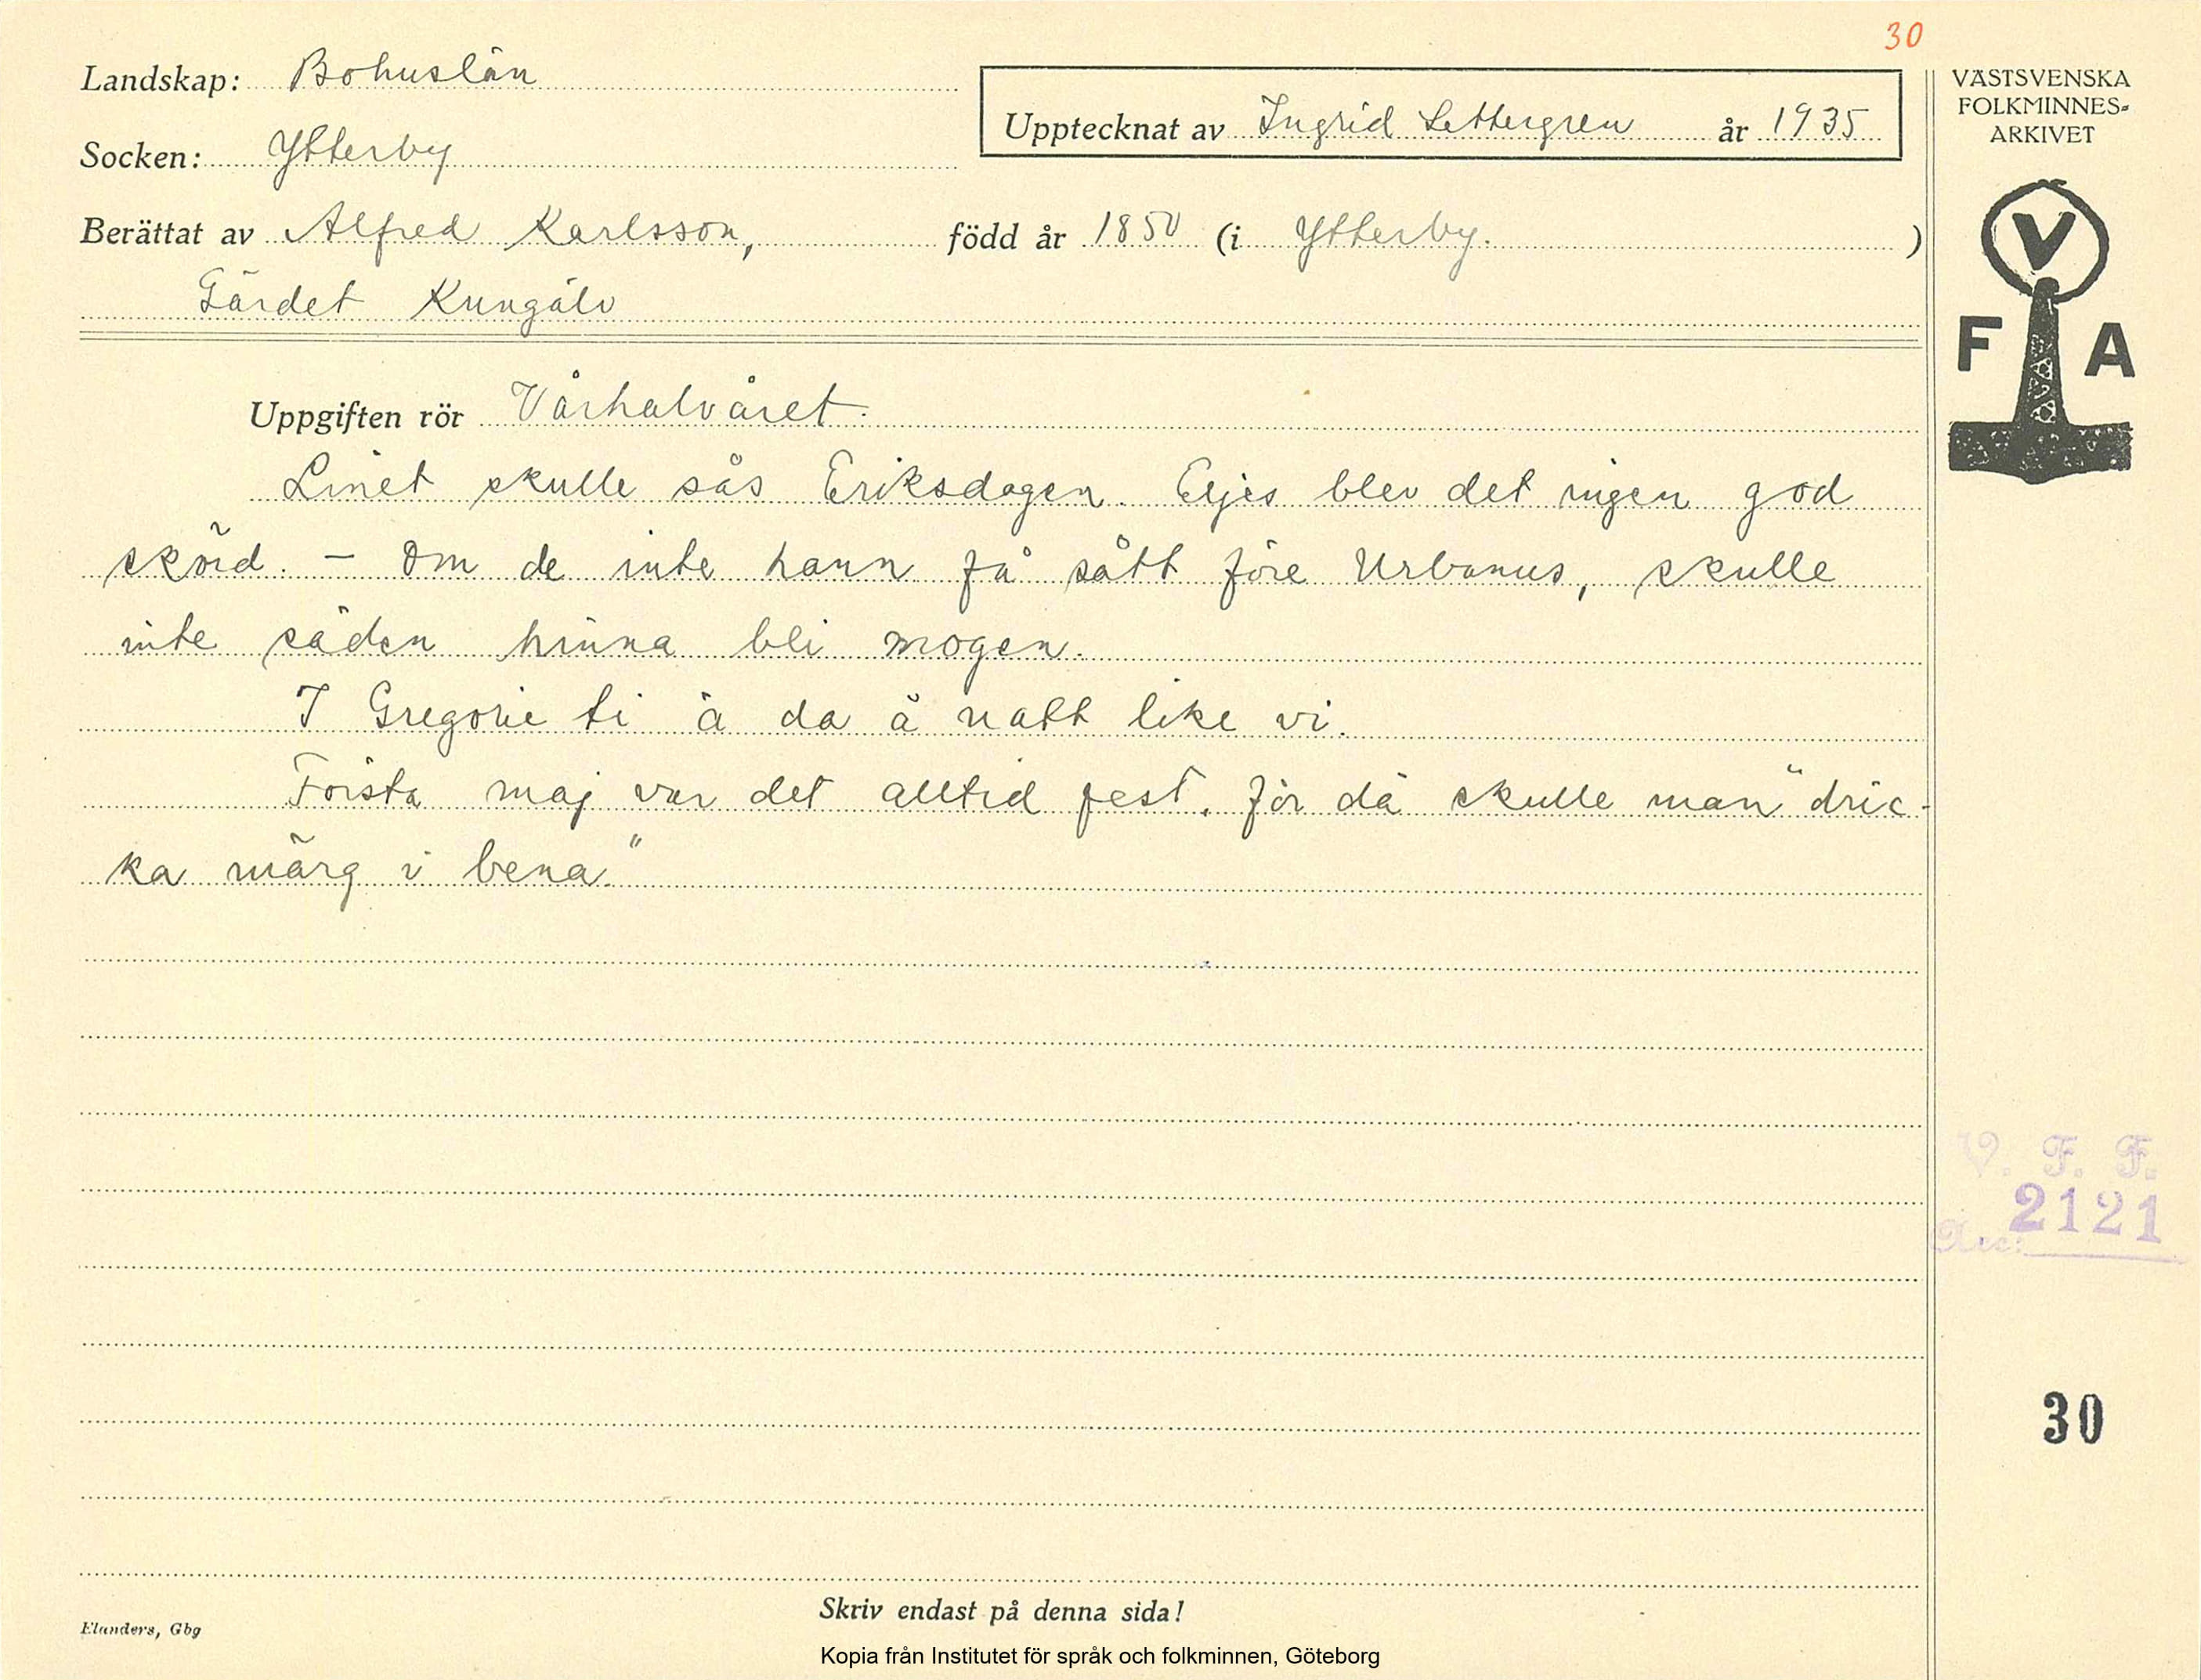 30
Landskap: Bohuslän
Socken: Ytterby
Upptecknat av Ingrid Settergren år 1935
Berättat av Alfred Karlsson, född år 1850 (i Ytterby. )
Gärdet Kungälv
VÄSTSVENSKA
FOLKMINNES-
ARKIVET
V
F A
Uppgiften rör Vårhalvåret.
Linet skulle sås Eriksdagen. Eljes blev det ingen god
skörd. – Om de inte hann få sått före Urbanus, skulle
inte säden hinna bli mogen.
I Gregorie ti ä da å natt like vi.
Första maj var det alltid fest, för då skulle man "dric-
ka märg i bena."
V. F. F.
2121
Acc:
30
Skriv endast på denna sida!
Elanders, Gbg
Kopia från Institutet för språk och folkminnen, Göteborg